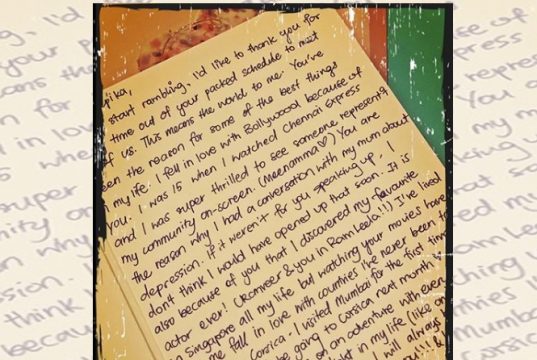 pika,
start rambling, I'd like to thank you for
time out of your packed schedule to meet
of us. This means the world to me. You've
een the reason for some of the best things
my life. I fell in love with Bollywood because of
you. I was 15 when I watched Chennai Express
and I was super thrilled to see someone represent
my community on-screen. (Meenamma♡) You are
the reason why I had a conversation with my mum about
depression. If it weren't for you speaking up, I
don't think I would have opened up that soon. It is
also because of you that I discovered my favourite
actor ever! (Ranveer & you in Ram Leela!!) I've lived
in Singapore all my life but watching your movies have
me fall in love with countries I've never been to
Corsica. I visited Mumbai for the first time
be going to Corsica next month
on an adventure with even
in my life (like
will always